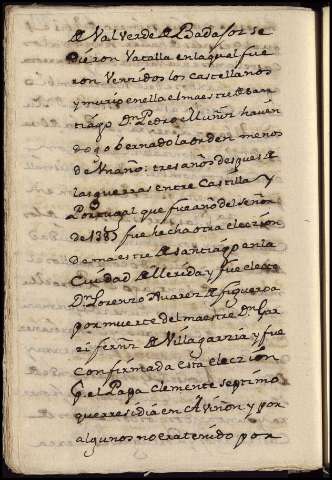 de Valverde de Badajoz se
dieron Vatalla enlaqual fue
ron Vencidos los castellanos
y murio enella el maestre de San
tiago Dn Pedro Muñiz havien
do governado la orden menos
de Un año: tres años despues de
las guerras entre Castilla y
Portugal que fue año del señor
de 1387 fue hecha otra eleccion
de maestre de santiago en la
Ciudad de llerida y fue electo
Dn Lorenzo Suarez de figueroa
por muerte del maestre Dn Gar
ci fernz de Villagarzia y fue
confirmada esta eleccion
el Papa Clemente septimo
que rresidia en Aviñon y por
algunos no era tenido por